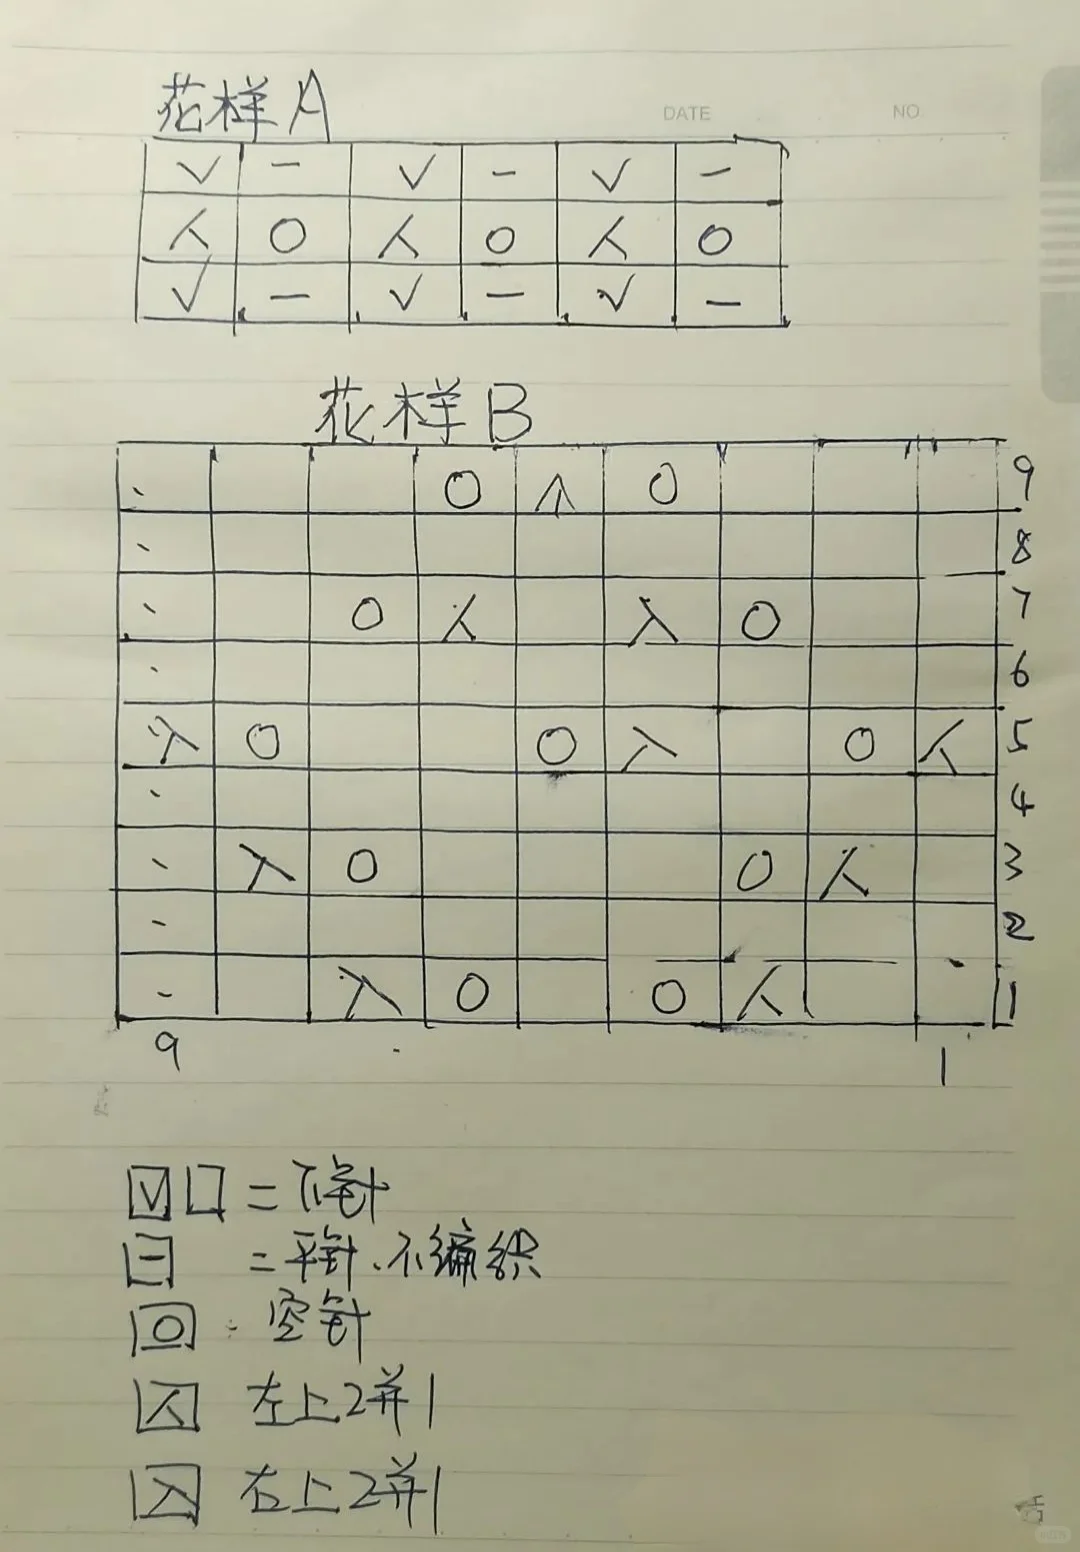 花样A
DATE NO
√ — √ — √ —
人 O 人 O 人 O
√ — √ — √ —
花样B
- O 个 O 9
- 8
- O 人 入 O 7
- 6
入 O O 入 O 人 5
- 4
- 入 O O 人 3
- 2
- 入 O O 人 1
9 1
√ □ = 下针
— = 平针、不编织
O : 空针
人 左上2并1
入 右上2并1